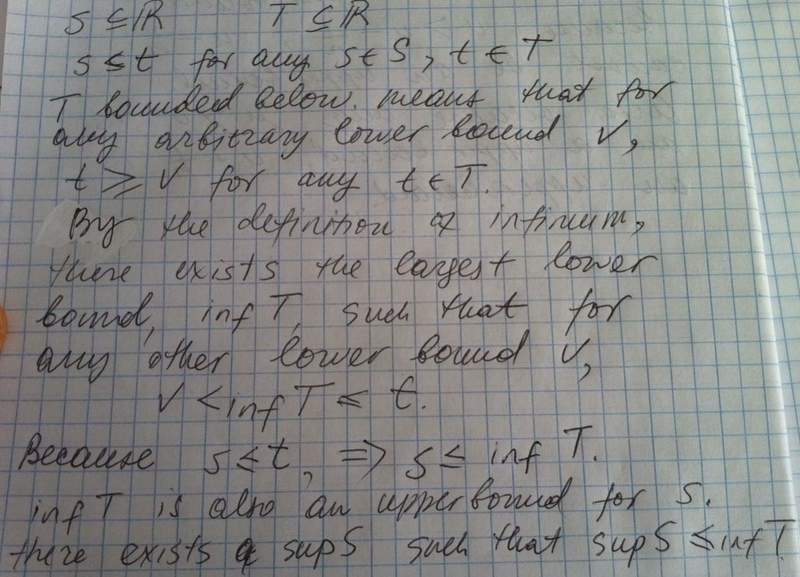 S ⊆ ℝ T ⊆ ℝ
s ≤ t for any s ∈ S, t ∈ T
T bounded below means that for
any arbitrary lower bound v,
t ≥ v for any t ∈ T.
By the definition of infimum,
there exists the largest lower
bound, inf T, such that for
any other lower bound v,
v < inf T ≤ t.
Because s ≤ t, ⇒ s ≤ inf T.
inf T is also an upper bound for S.
there exists a sup S such that sup S ≤ inf T